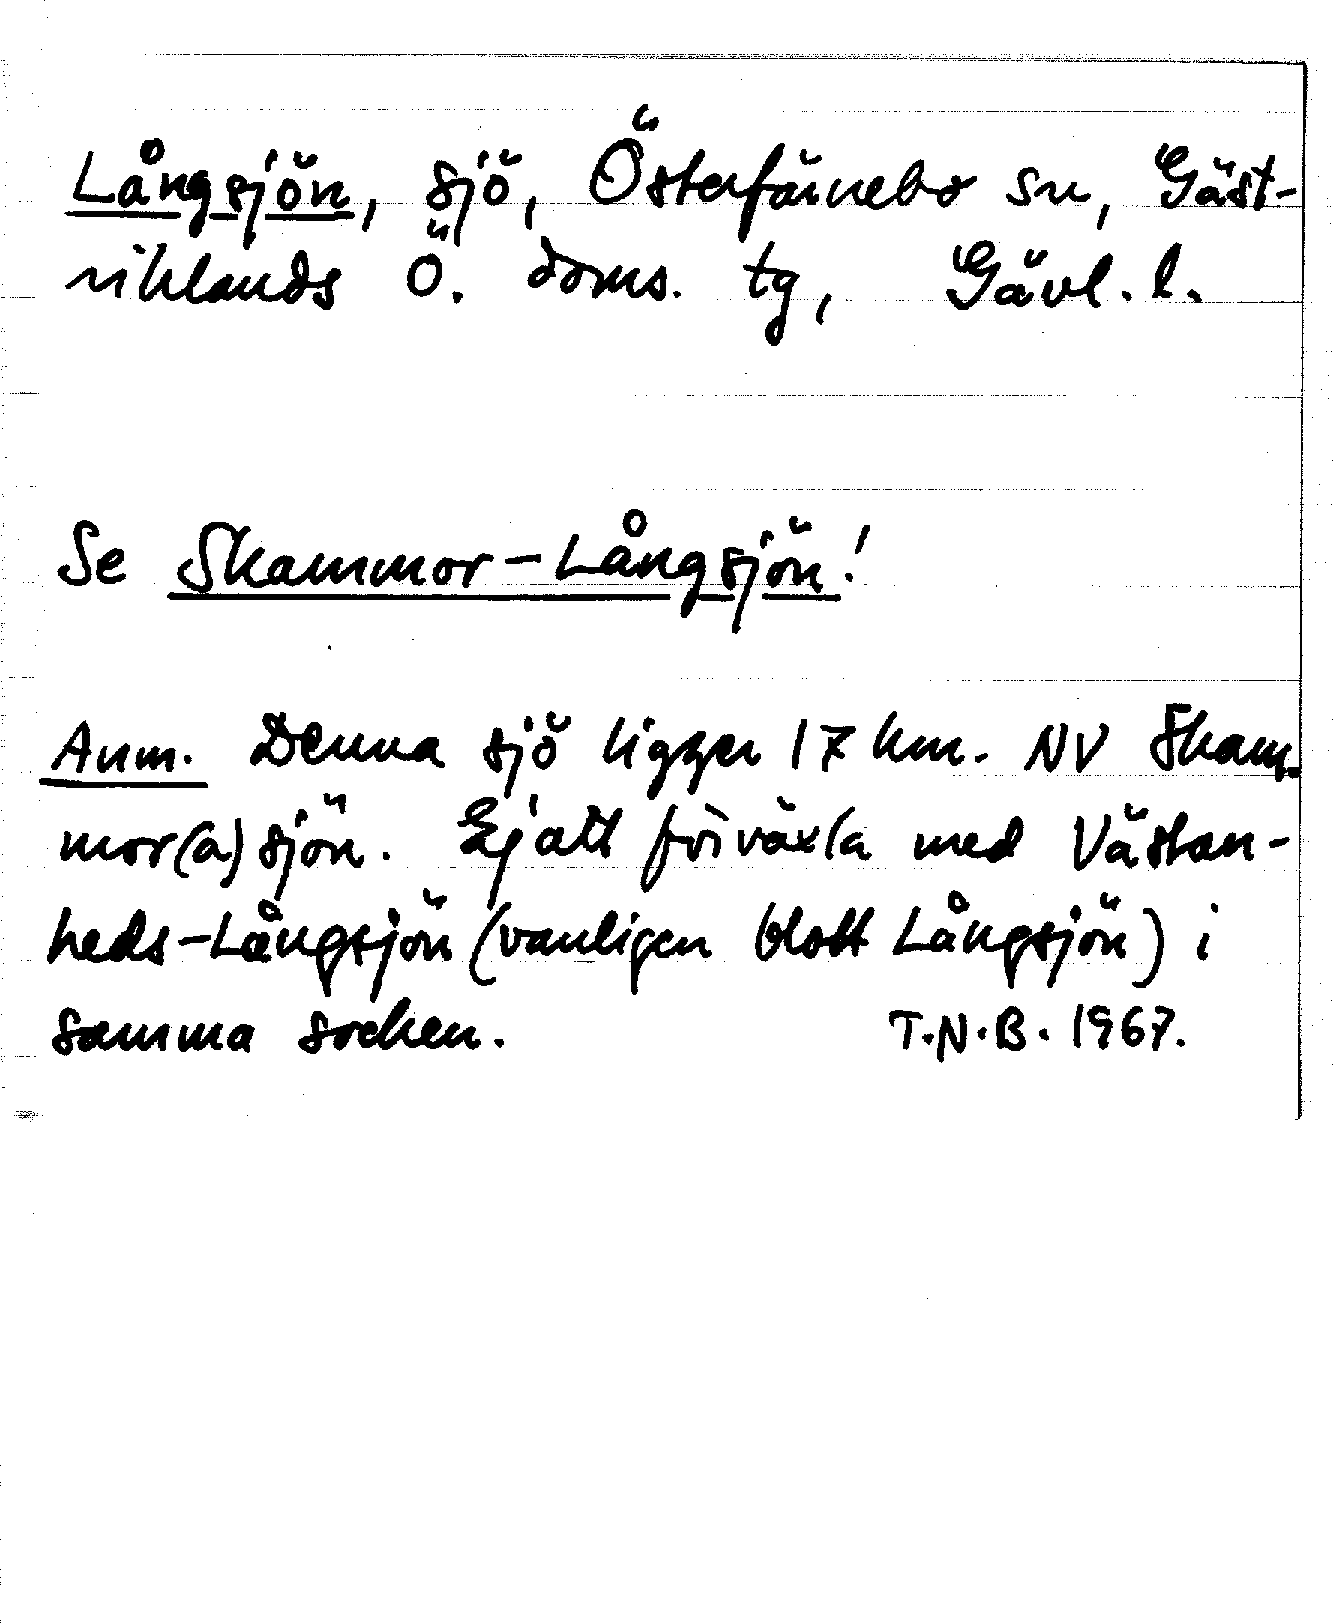 Långsjön, sjö, Österfärnebo sn, Gäst-
riklands Ö. doms. tg, Gävl. l.
Se Skammor-Långsjön!
Anm. Denna sjö ligger 17 km. NV Skam-
mor(a)sjön. Ej att förväxla med Västan-
heds-Långsjön (vanligen blott Långsjön) i
samma socken. T.N.B. 1967.